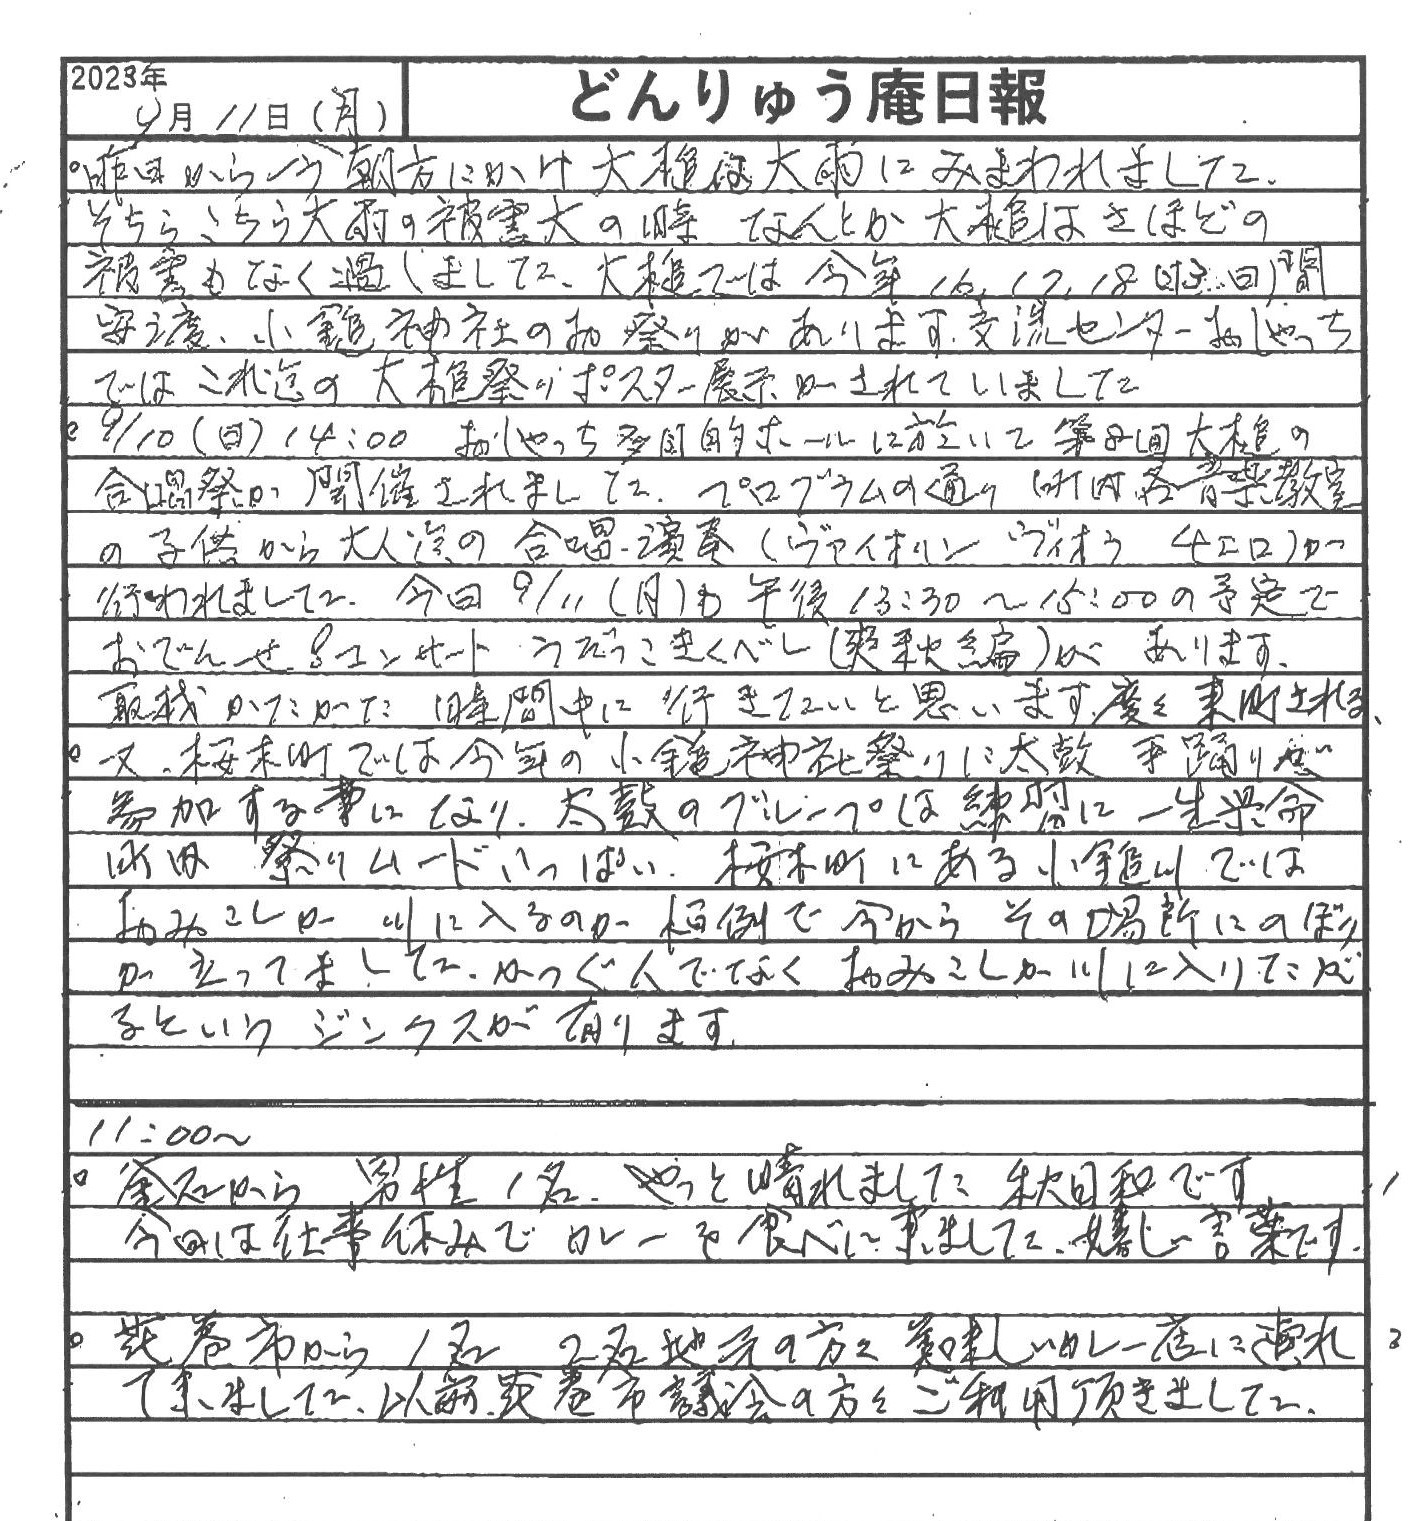 2023年
9月11日(月)
どんりゅう庵日報
。昨日から今朝方にかけ大槌は大雨にみまわれました。
そちらこちら大雨の被害大の時 なんとか大槌はさほどの
被害もなく過しました。大槌では今年16,17,18日3日間
安渡、小鎚神社のお祭りがあります。交流センターおしゃっち
ではこれ迄の大槌祭りポスター展示がされていました
。9/10(日)14:00 おしゃっち多目的ホールに於いて第8回大槌の
合唱祭が開催されました。プログラムの通り町内各音楽教室
の子供から大人迄の合唱・演奏(ヴァイオリン ヴィオラ チェロ)が
行われました。今日9/11(月)も午後13:30〜15:00の予定で
おでんせ♪コンサート うだっこきくべし(爽秋編)があります。
取材かたがた時間中に行きたいと思います。度々来町される、
。又、桜木町では今年の小鎚神社祭りに太鼓 手踊りが
参加する事になり、太鼓のグループは練習に一生懸命
町内 祭りムードいっぱい。桜木町にある小鎚川では
おみこしが川に入るのが恒例で今からその場所にのぼり
が立ってました。かつぐ人でなくおみこしが川に入りたが
るというジンクスが有ります。
11:00〜
。釜石から 男性1名。やっと晴れました 秋日和です 1
今日は仕事休みでカレーを食べに来ました。嬉しい言葉です。
。花巻市から1名 2名地元の方々美味しいカレー店に連れ 3
て来ました。以前花巻市議会の方々ご利用頂きました。